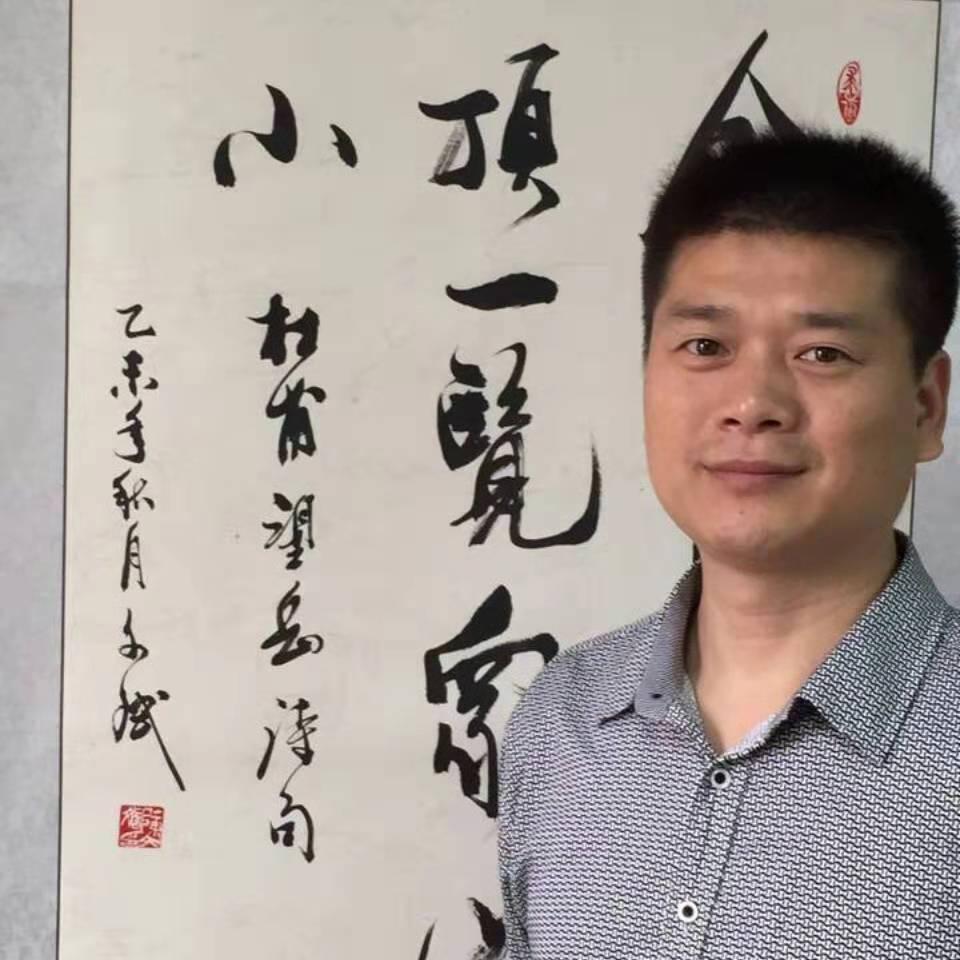 頂一覽眾
小
杜甫望岳诗句
乙未年秋月文斌